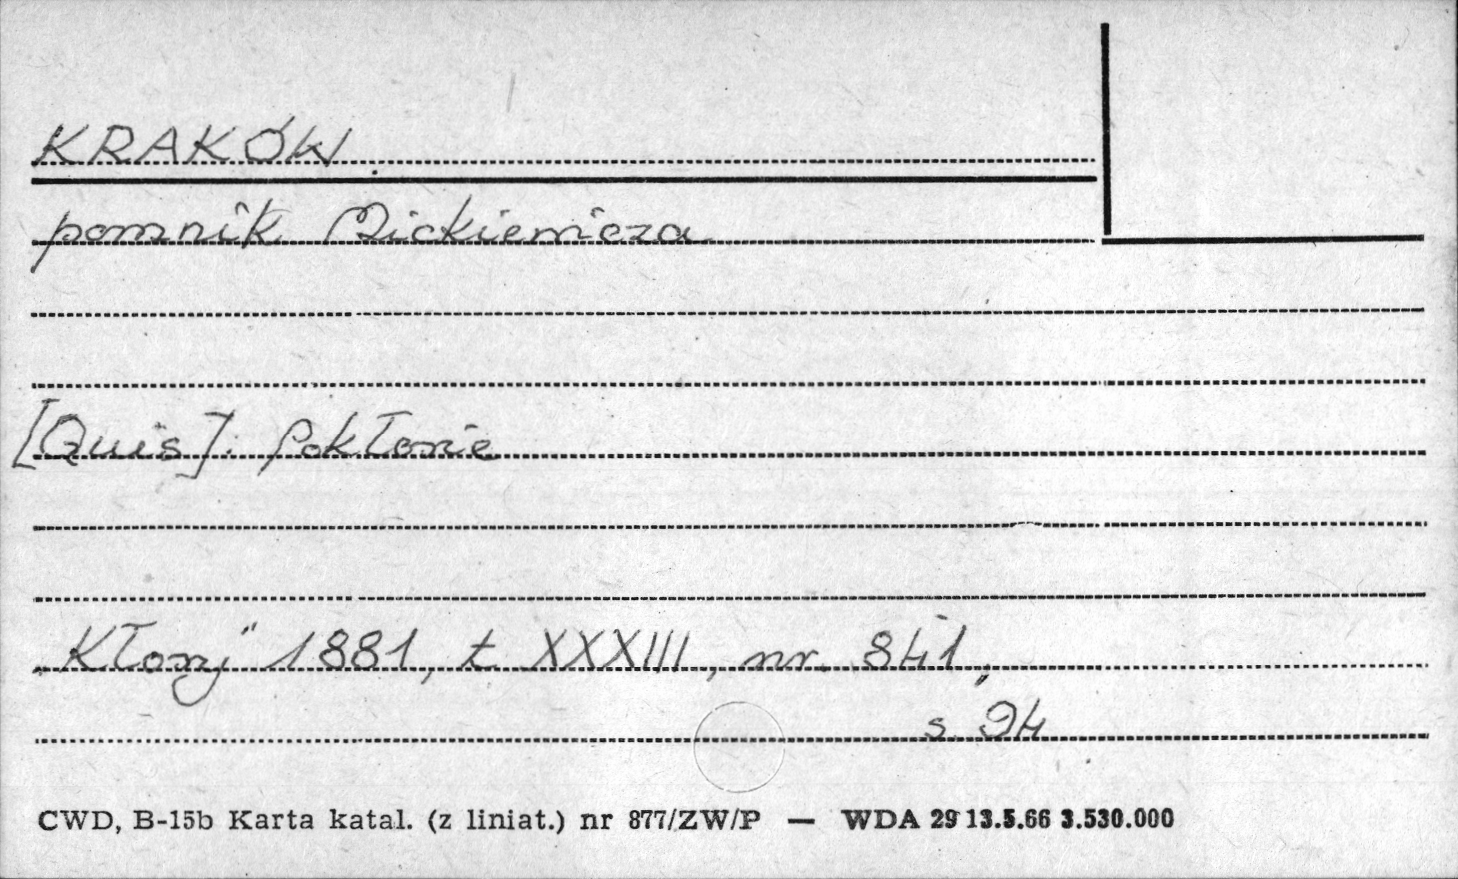 KRAKÓW
pomnik Mickiewicza
[Quis]: Pokłosie
„Kłosy" 1881, t XXXIII, nr. 841,
s. 94
CWD, B-15b Karta katal. (z liniat.) nr 877/ZW/P — WDA 29 13.5.66 3.530.000